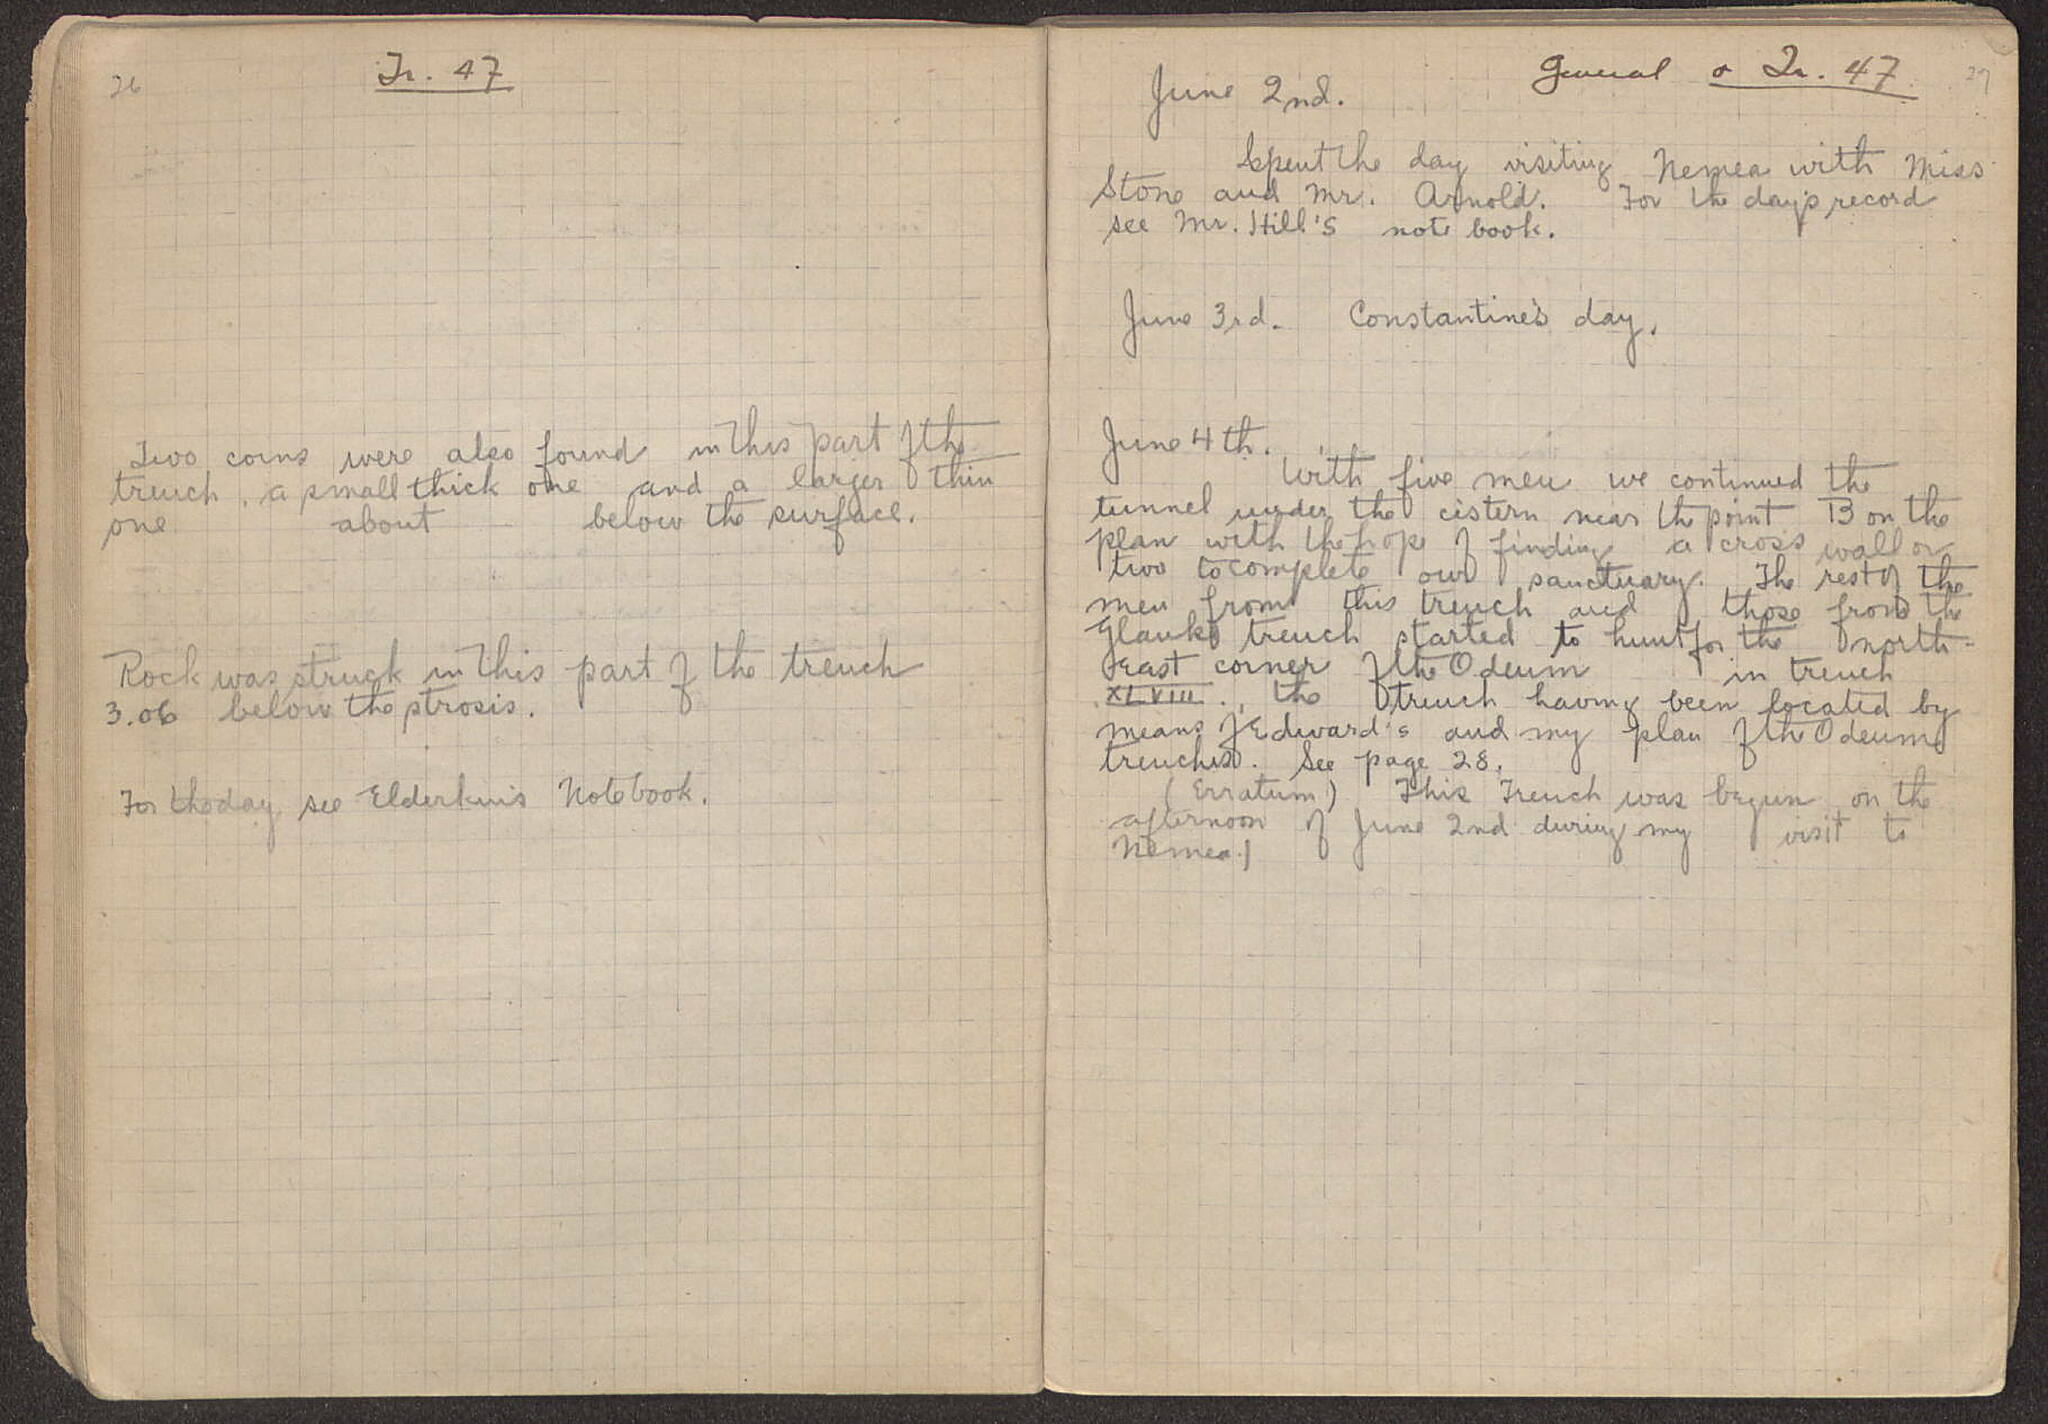 26
Tr. 47
Two coins were also found in this part of the
trench, a small thick one and a larger thin
one about below the surface.
Rock was struck in this part of the trench
3.06 below the strosis.
For the day see Elderkin's Notebook.
General & Tr. 47
27
June 2nd.
Spent the day visiting Nemea with Miss
Stone and Mr. Arnold. For the day's record
see Mr. Hill's note book.
June 3rd. Constantine's day.
June 4th.
With five men we continued the
tunnel under the cistern near the point B on the
plan with the hope of finding a cross wall or
two to complete our sanctuary. The rest of the
men from this trench and those from the
Glauke trench started to hunt for the north-
east corner of the Odeum in trench
XLVIII., the trench having been located by
means of Edward's and my plan of the Odeum
trenches. See page 28.
(Erratum) This Trench was begun on the
afternoon of June 2nd during my visit to
Nemea.)